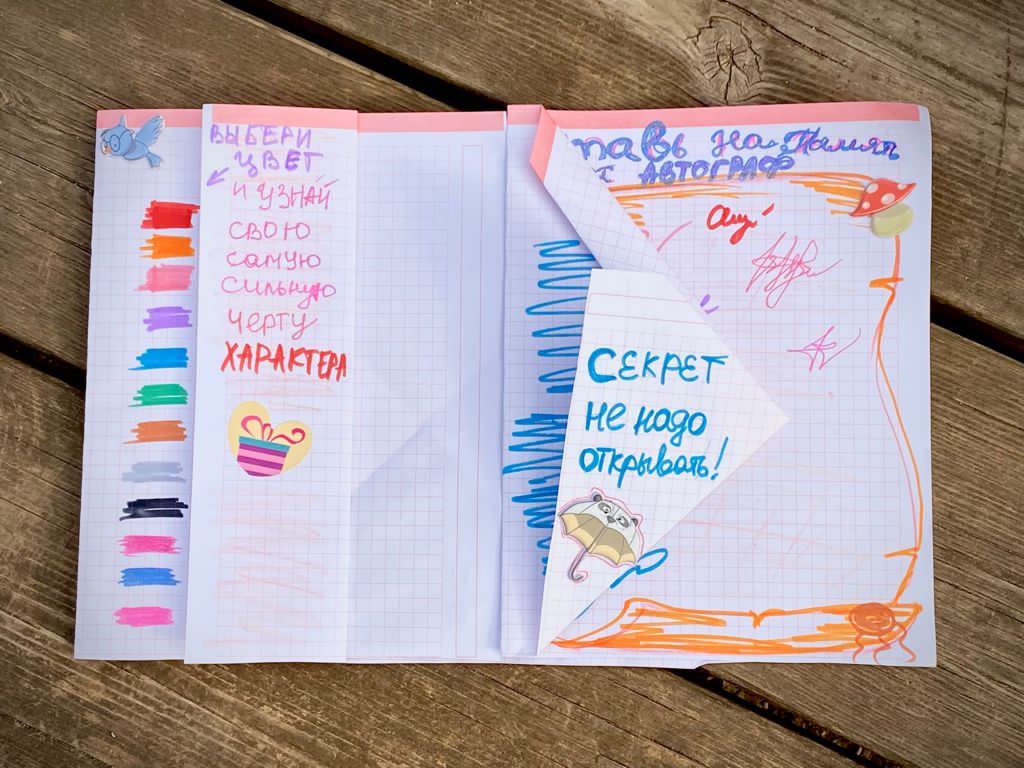 ВЫБЕРИ
ЦВЕТ
И УЗНАЙ
СВОЮ
самую
сильную
черту
ХАРАКТЕРА
на память
АВТОГРАФ
СЕКРЕТ
не надо
открывать!